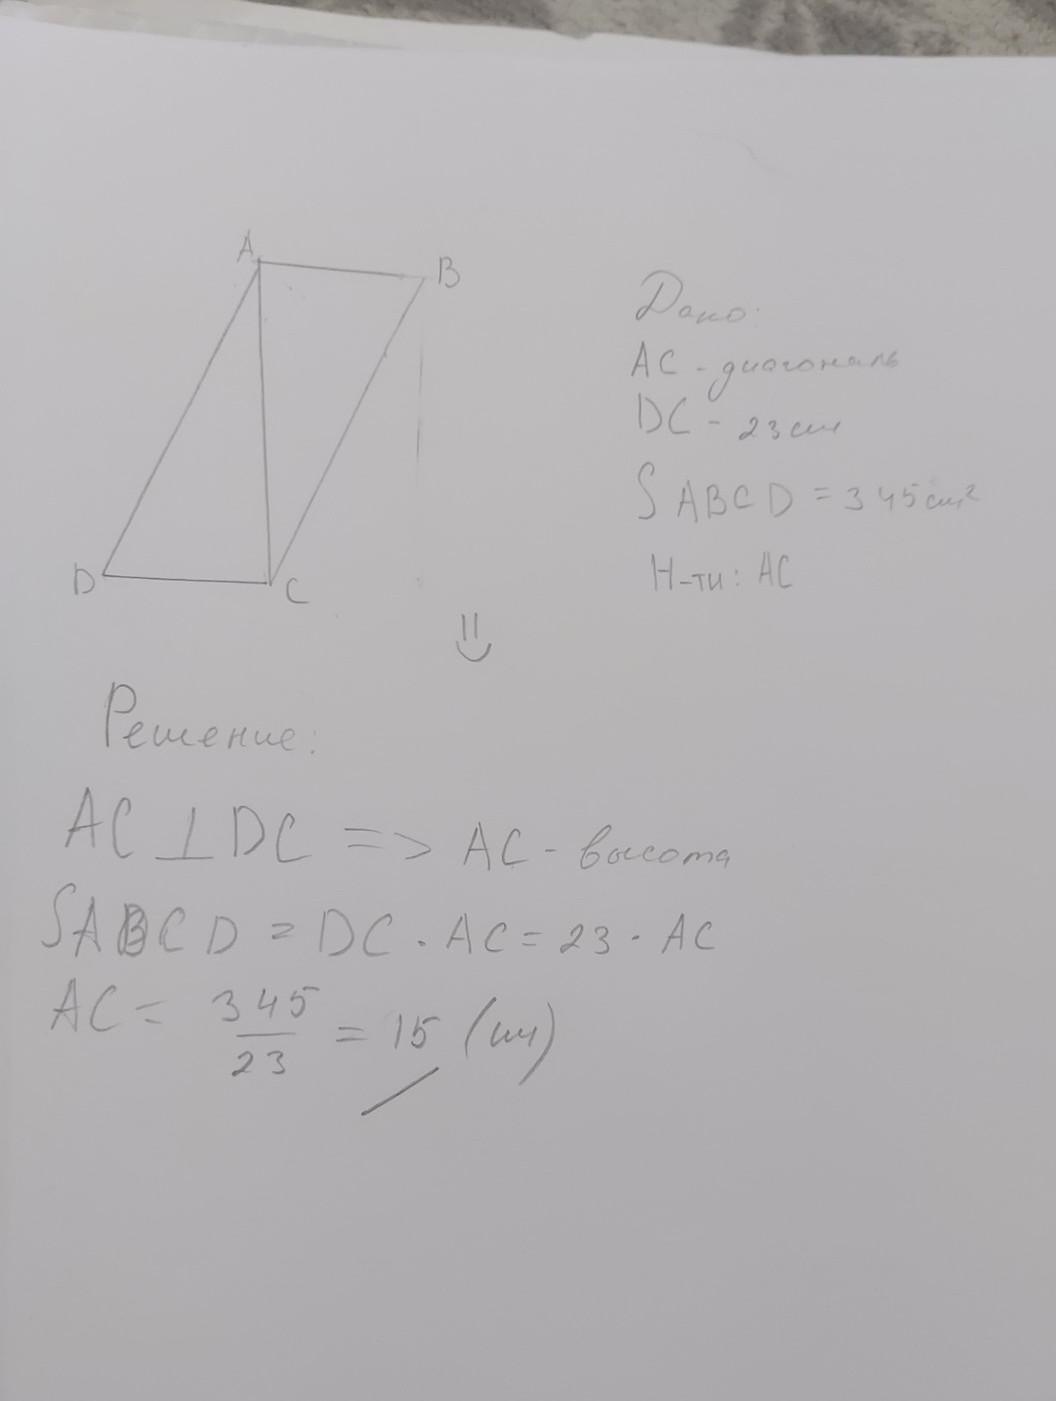 A
B
D
C
Дано:
AC - диагональ
DC - 23 см
SABCD = 345 см²
Н-ти: AC
Решение:
AC ⊥ DC => AC - высота
SABCD = DC · AC = 23 · AC
AC = 345/23 = 15 (см)